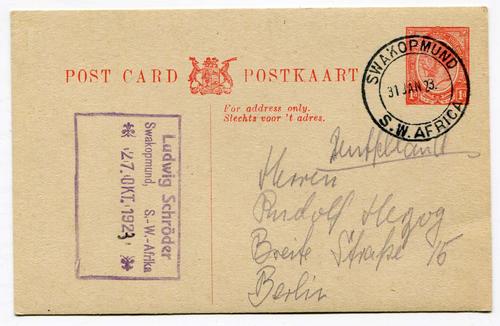 POST CARD POSTKAART
For address only.
Slechts voor 't adres.
SWAKOPMUND
31 JAN 23.
S.W. AFRICA
Ludwig Schröder
Swakopmund, S.-W.-Afrika
27. OKT. 1923
Herrn
Rudolf Hezog
Breite Straße 15
Berlin